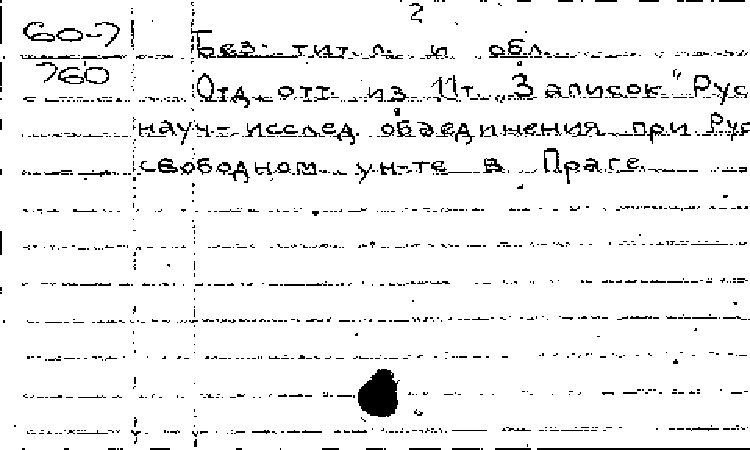 2
60-7
760
Без тит. л. и обл.
Отд. отт. из 11 т. "Записок" Рус
науч-исслед. объединения при Рус
свободном ун-те в Праге